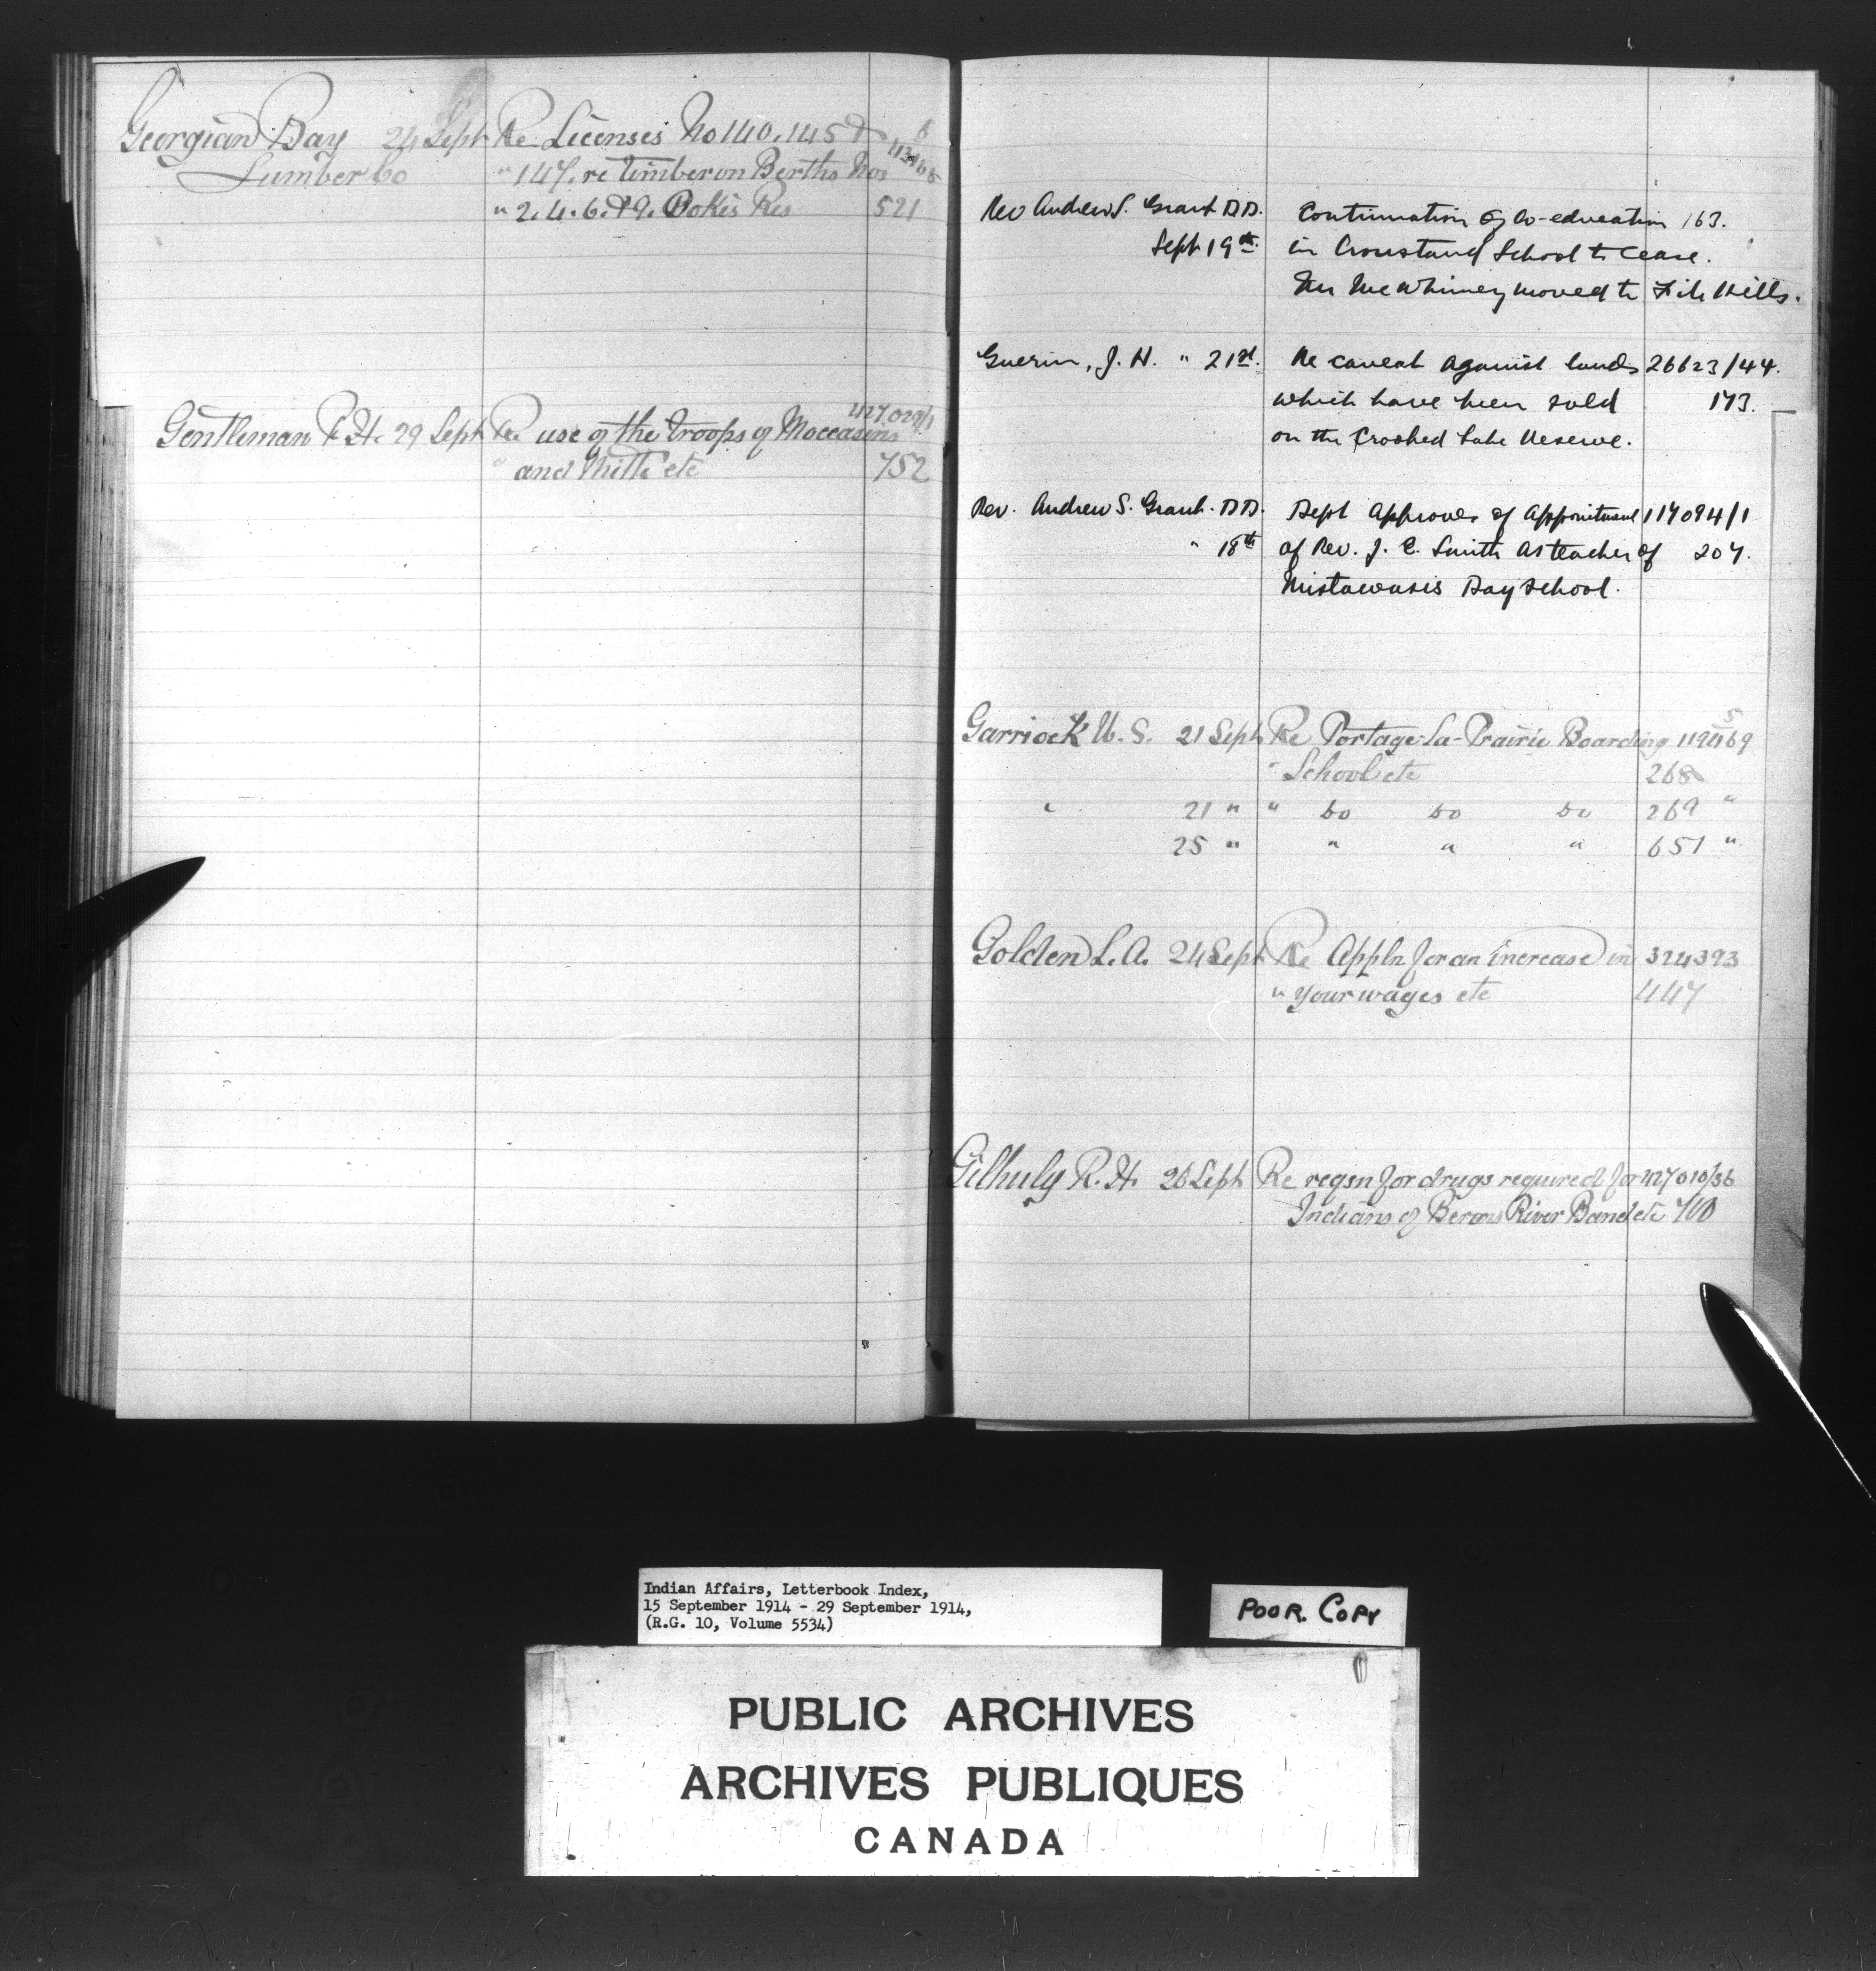 Georgian Bay 24 Sept Re Licenses No 140, 145 &
Lumber Co " 147. re timber on Berths Nos
" 2. 4. 6. & 9. Dokis Res 521
Gentleman P. H. 29 Sept Re use of the troops of Moccasins 427,029/1
" and Mitts etc 752
Rev Andrew S. Grant D.D. Continuation of Co-education 163.
Sept 19th. in Crowstand School to cease.
Mr McWhinney moved to File Hills.
Guerin, J. H. " 21st. Re caveat against lands 26623/44.
which have been sold 173.
on the Crooked Lake Reserve.
Rev. Andrew S. Grant. D.D. Dept approves of appointment 117094/1
" 18th of Rev. J. C. Smith as teacher of 207.
Mistawasis Day School.
Garriock W. S. 21 Sept Re Portage-La-Prairie Boarding
" School etc 268
" 21 " " Do Do Do 269 "
25 " " " " 651 "
Golden L. A. 24 Sept Re Appln for an increase in 324393
" your wages etc 447
Gilhuly R. H. 26 Sept Re reqsn for drugs required for 427010/36
Indians of Berens River Band etc
Indian Affairs, Letterbook Index,
15 September 1914 - 29 September 1914,
(R.G. 10, Volume 5534)
POOR. COPY
PUBLIC ARCHIVES
ARCHIVES PUBLIQUES
CANADA